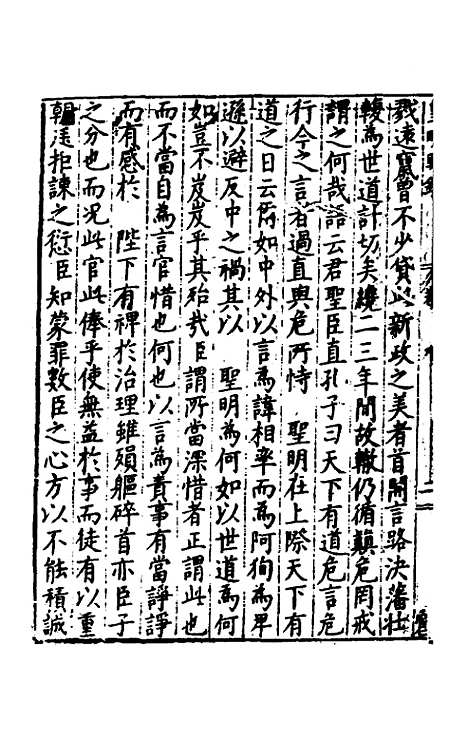 戮遠竄曾不少貸此新政之美者首開言路決藩壯
轅為世道計切矣纔二三年間故轍仍循顛危罔戒
謂之何哉語云君聖臣直孔子曰天下有道危言危
行今之言者過直與危所恃　聖明在上際天下有
道之日云爾如中外以言為諱相率而為阿徇為畀
遜以避反中之禍其以　聖明為何如以世道為何
如豈不岌岌乎其殆哉臣謂所當深惜者正謂此也
而不當自為言官惜也何也以言為責事有當諍諍
而有感於　陛下有裨於治理雖殞軀碎首亦臣子
之分也而況此官此俸乎使無益於事而徒有以重
朝廷拒諫之愆臣知蒙罪數臣之心方以不能積誠